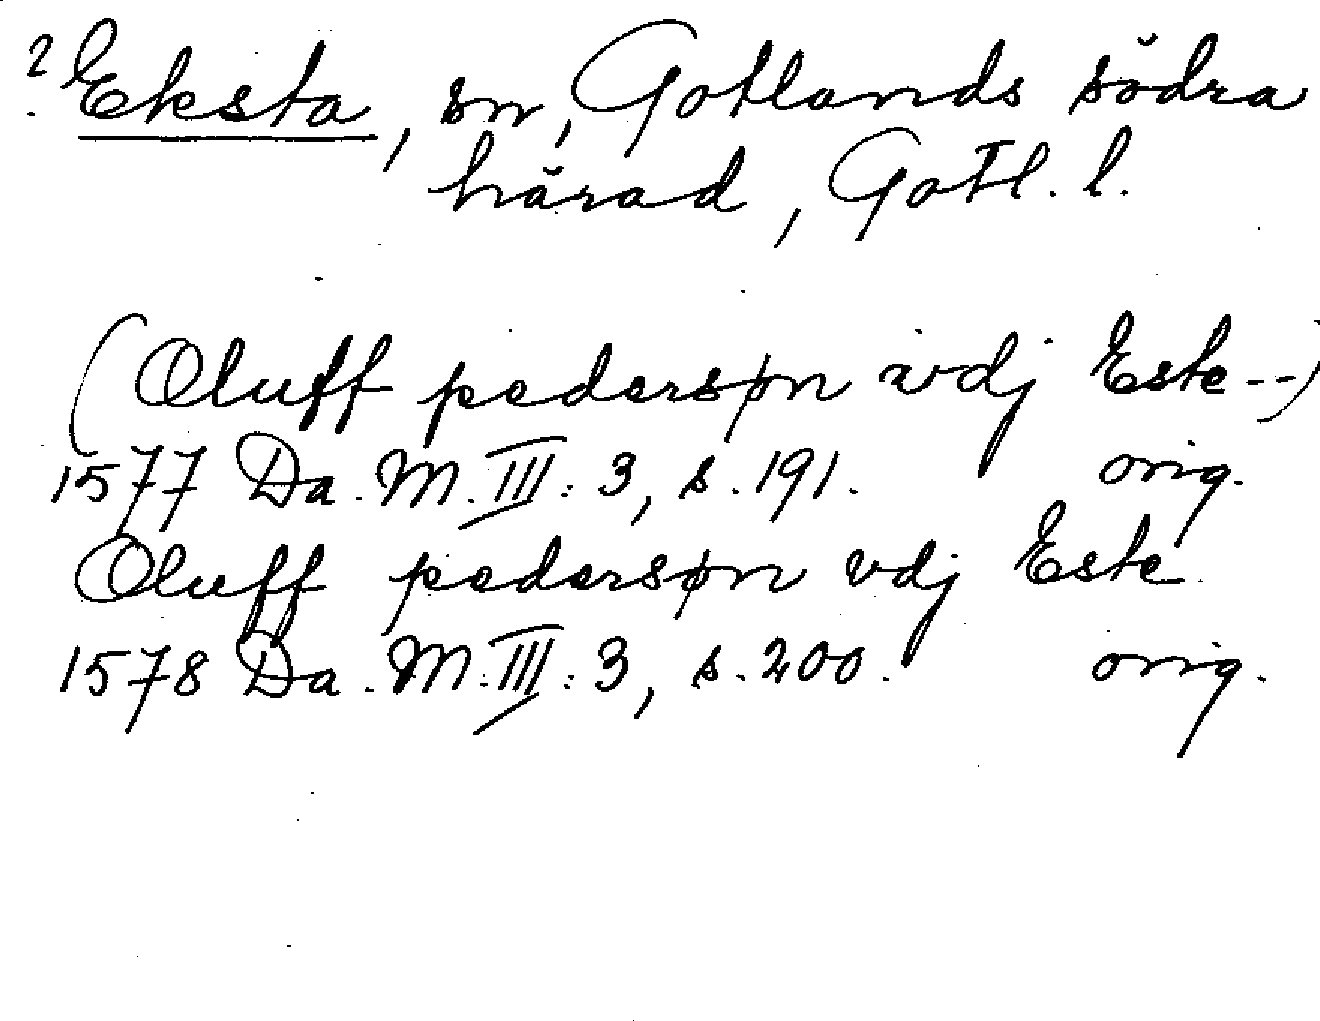 ? Eksta, sn, Gotlands södra
härad, Gotl. l.
(Oluff pedersøn wdj Este--)
1577 Da. M. III: 3, s. 191. orig.
Oluff pedersøn vdj Este
1578 Da. M. III: 3, s. 200. orig.